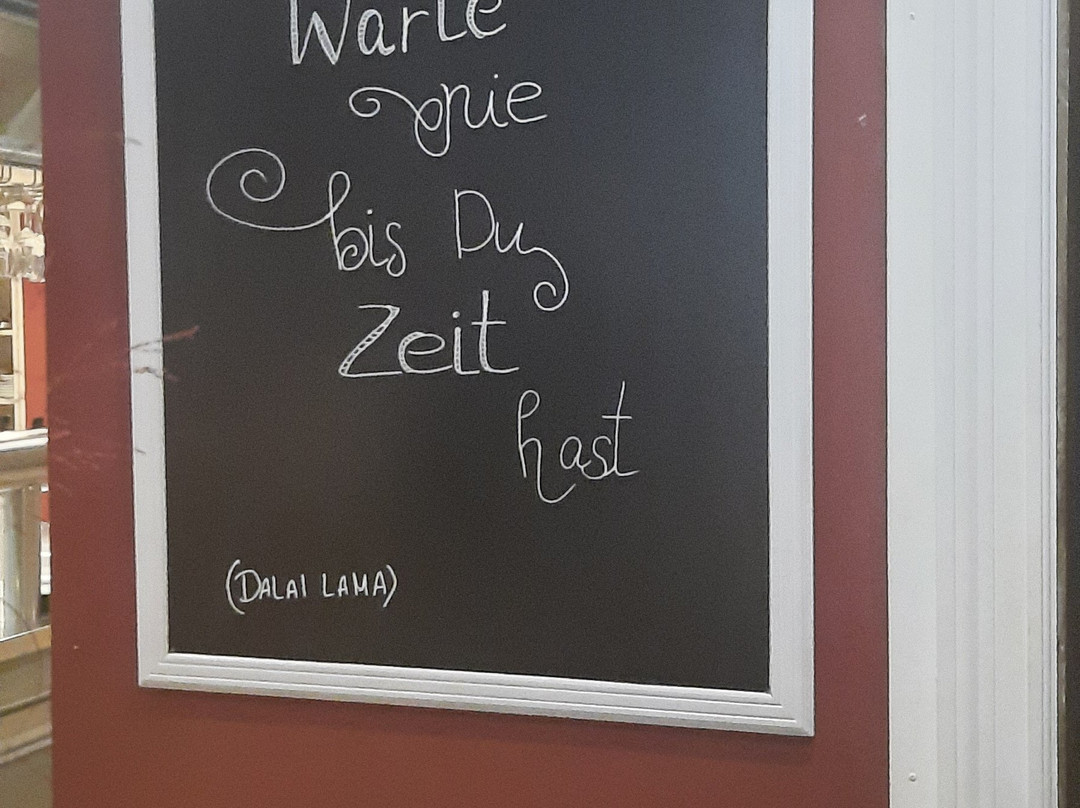 Warte
nie
bis Du
Zeit
hast
(DALAI LAMA)